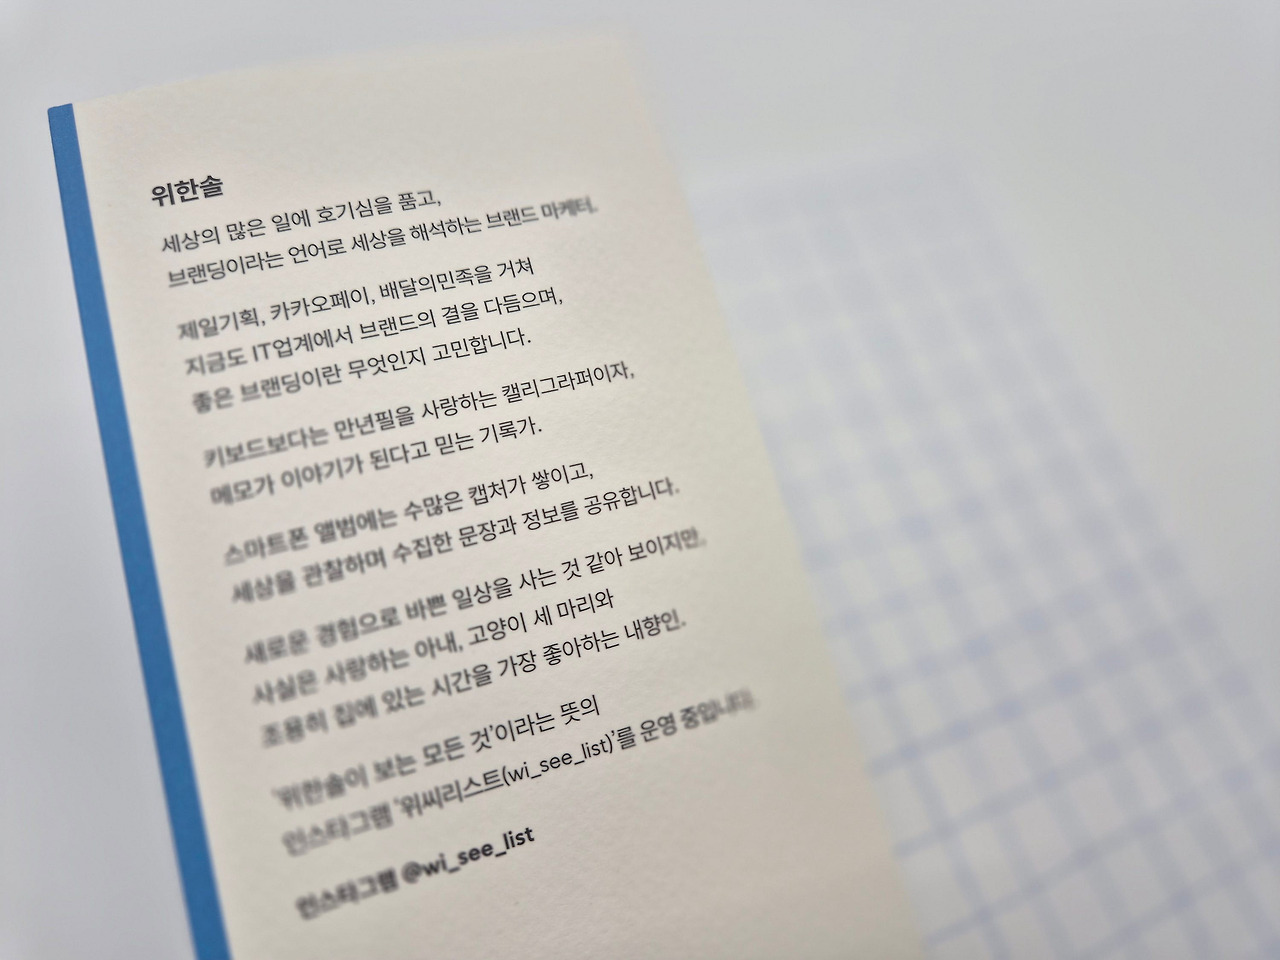 위한솔
세상의 많은 일에 호기심을 품고,
브랜딩이라는 언어로 세상을 해석하는 브랜드 마케터.
제일기획, 카카오페이, 배달의민족을 거쳐
지금도 IT업계에서 브랜드의 결을 다듬으며,
좋은 브랜딩이란 무엇인지 고민합니다.
키보드보다는 만년필을 사랑하는 캘리그라퍼이자,
메모가 이야기가 된다고 믿는 기록가.
스마트폰 앨범에는 수많은 캡처가 쌓이고,
세상을 관찰하며 수집한 문장과 정보를 공유합니다.
새로운 경험으로 바쁜 일상을 사는 것 같아 보이지만,
사실은 사랑하는 아내, 고양이 세 마리와
조용히 집에 있는 시간을 가장 좋아하는 내향인.
'위한솔이 보는 모든 것'이라는 뜻의
인스타그램 '위씨리스트(wi_see_list)'를 운영 중입니다.
인스타그램 @wi_see_list